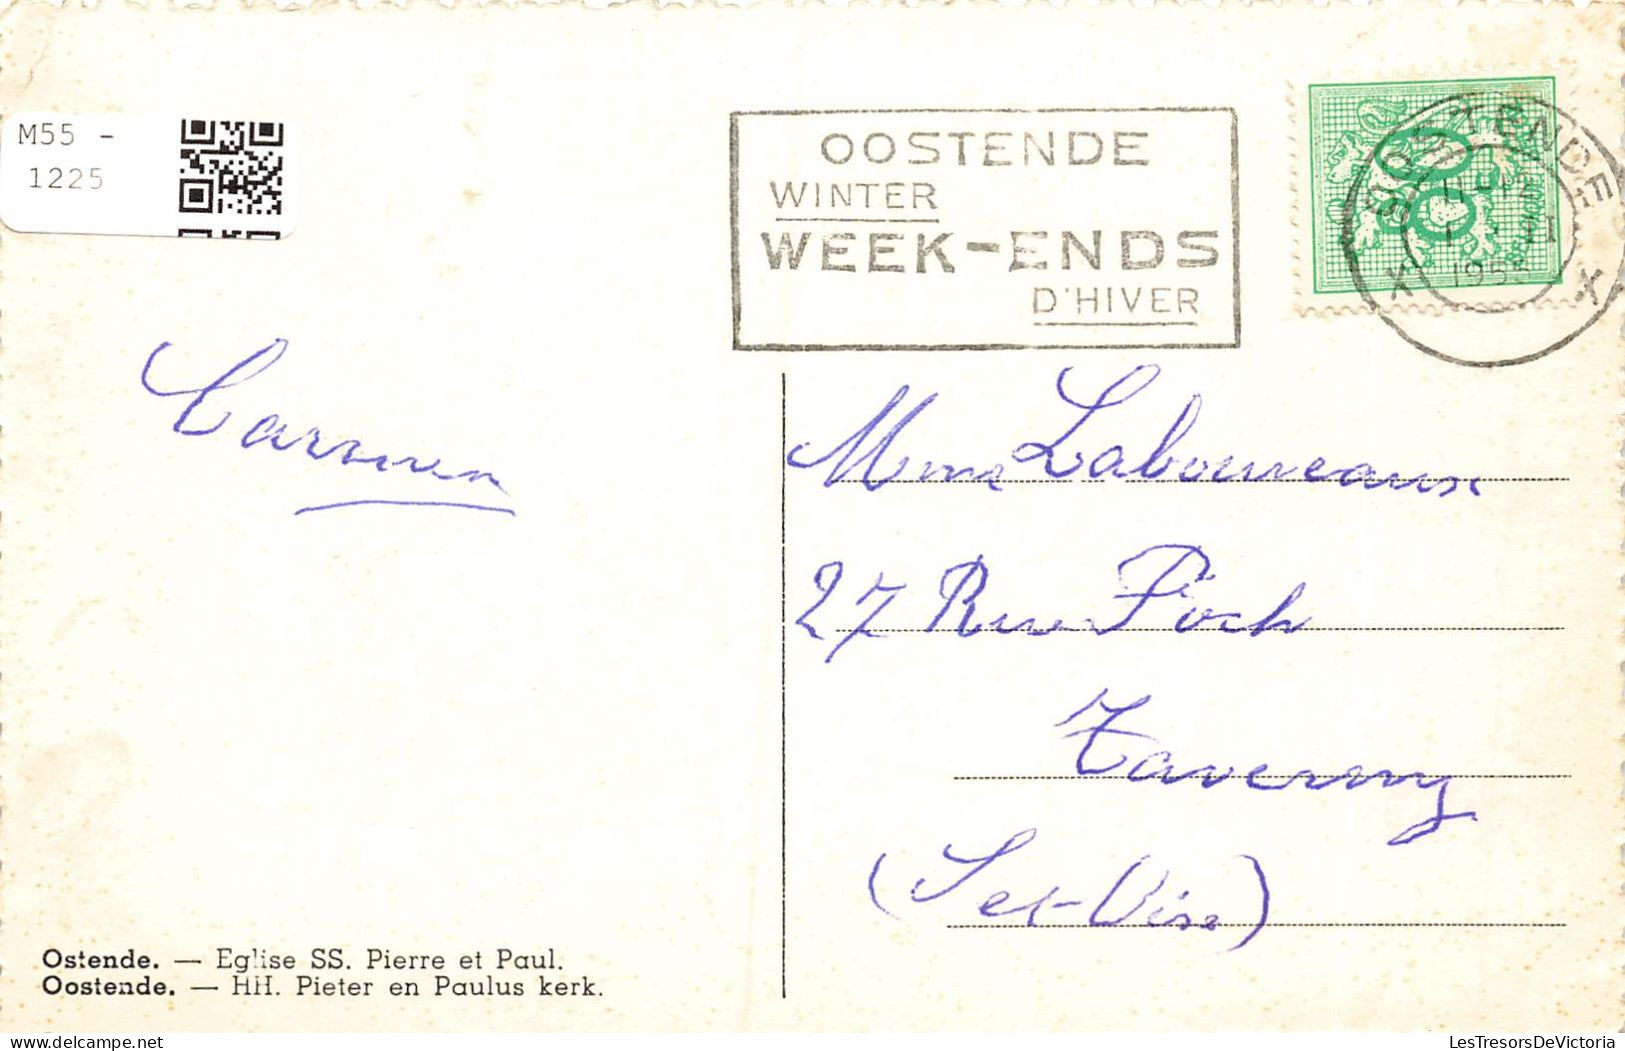 M55 -
1225
OOSTENDE
WINTER
WEEK-ENDS
D'HIVER
OOSTENDE
1955
X X
BELGIE
Carmen
Mme Labouveaux
27 Rue Foch
Taverny
(Set-Oise)
Ostende. — Eglise SS. Pierre et Paul.
Oostende. — HH. Pieter en Paulus kerk.
delcampe.net
LesTresorsDeVictoria